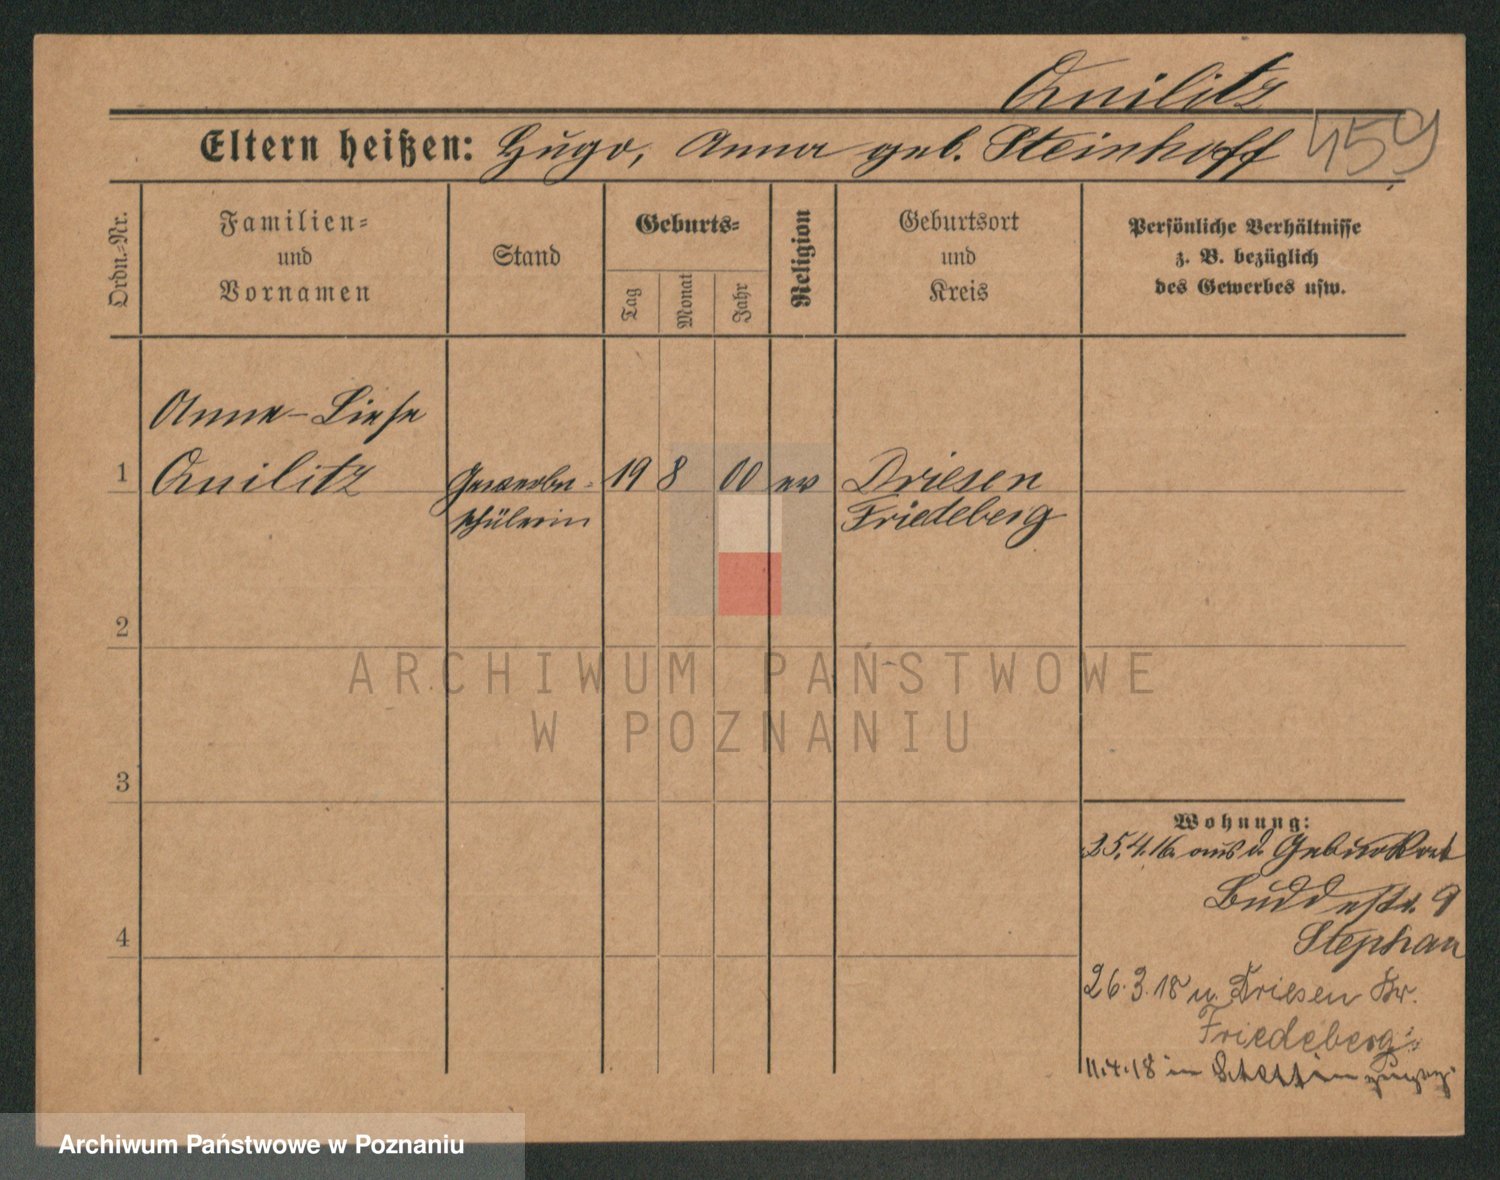 Quilitz
Eltern heißen: Hugo, Anna geb. Steinhoff 459
Ordn.-Nr.
Familien-
und
Vornamen
Stand
Geburts-
Tag
Monat
Jahr
Religion
Geburtsort
und
Kreis
Persönliche Verhältnisse
z. B. bezüglich
des Gewerbes usw.
Anne-Liese
1 Quilitz Gewerbe- 19 8 00 ev Driesen
schülerin Friedeberg
2
ARCHIWUM PAŃSTWOWE
W POZNANIU
3
Wohnung:
25.4.16 aus d. Geburtsort
Buddestr. 9
4
Stephan
26.3.18 n. Driesen Kr.
Friedeberg
11.4.18 in Stettin
Archiwum Państwowe w Poznaniu